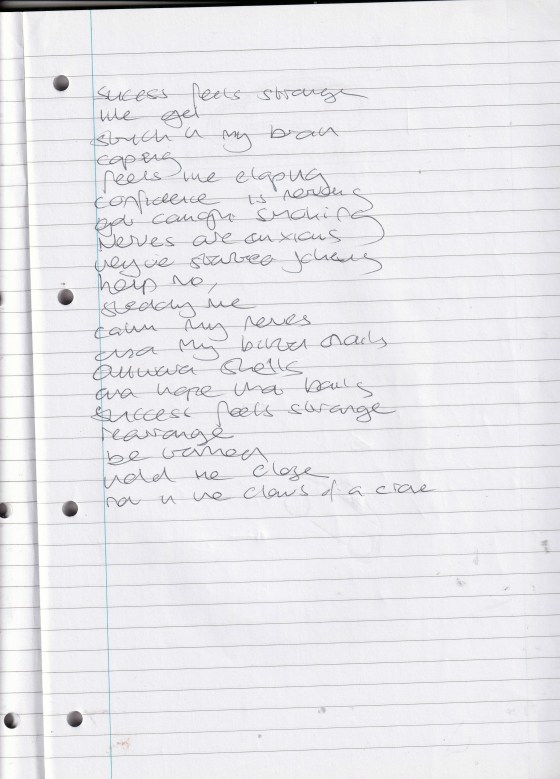 sucess feels strange
like gel
stuck in my brain
coping
feels like eloping
confidence is nervous
got caught smoking
Nerves are anxious
they've started
help me,
steady me
calm my nerves
and my bitten nails
outward shells
and hope that bails
success feels strange
rearrange
be warned
hold me close
not in the claws of a crow